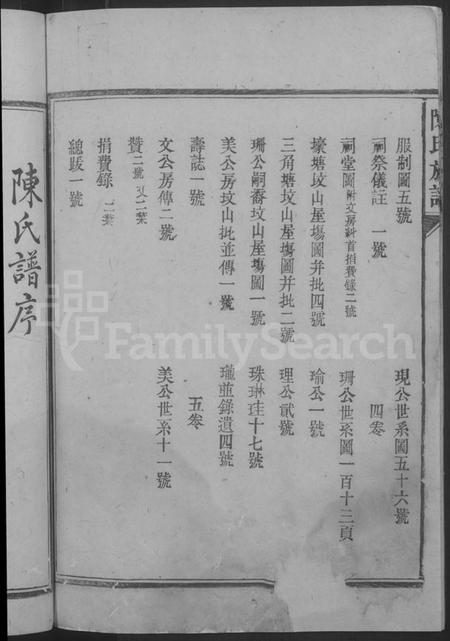 陳氏族譜
服制圖五號
現公世系圖五十六號
祠祭儀註 一號
四零
祠堂圖附文房科首捐費錄二號
珊公世系圖一百十三頁
壕塘坟山屋塲圖并批四號
瑜公一號
三角塘坟山屋塲圖并批二號
理公貳號
珊公嗣喬坟山屋塲圖一號
珠琳珪十七號
美公房坟山批並傳一號
瓏並錄遺四號
壽誌一號
五零
文公房傳二號
美公世系十一號
贊二號 又二葉
捐費錄 二葉
總跋一號
陳氏譜序
FamilySearch